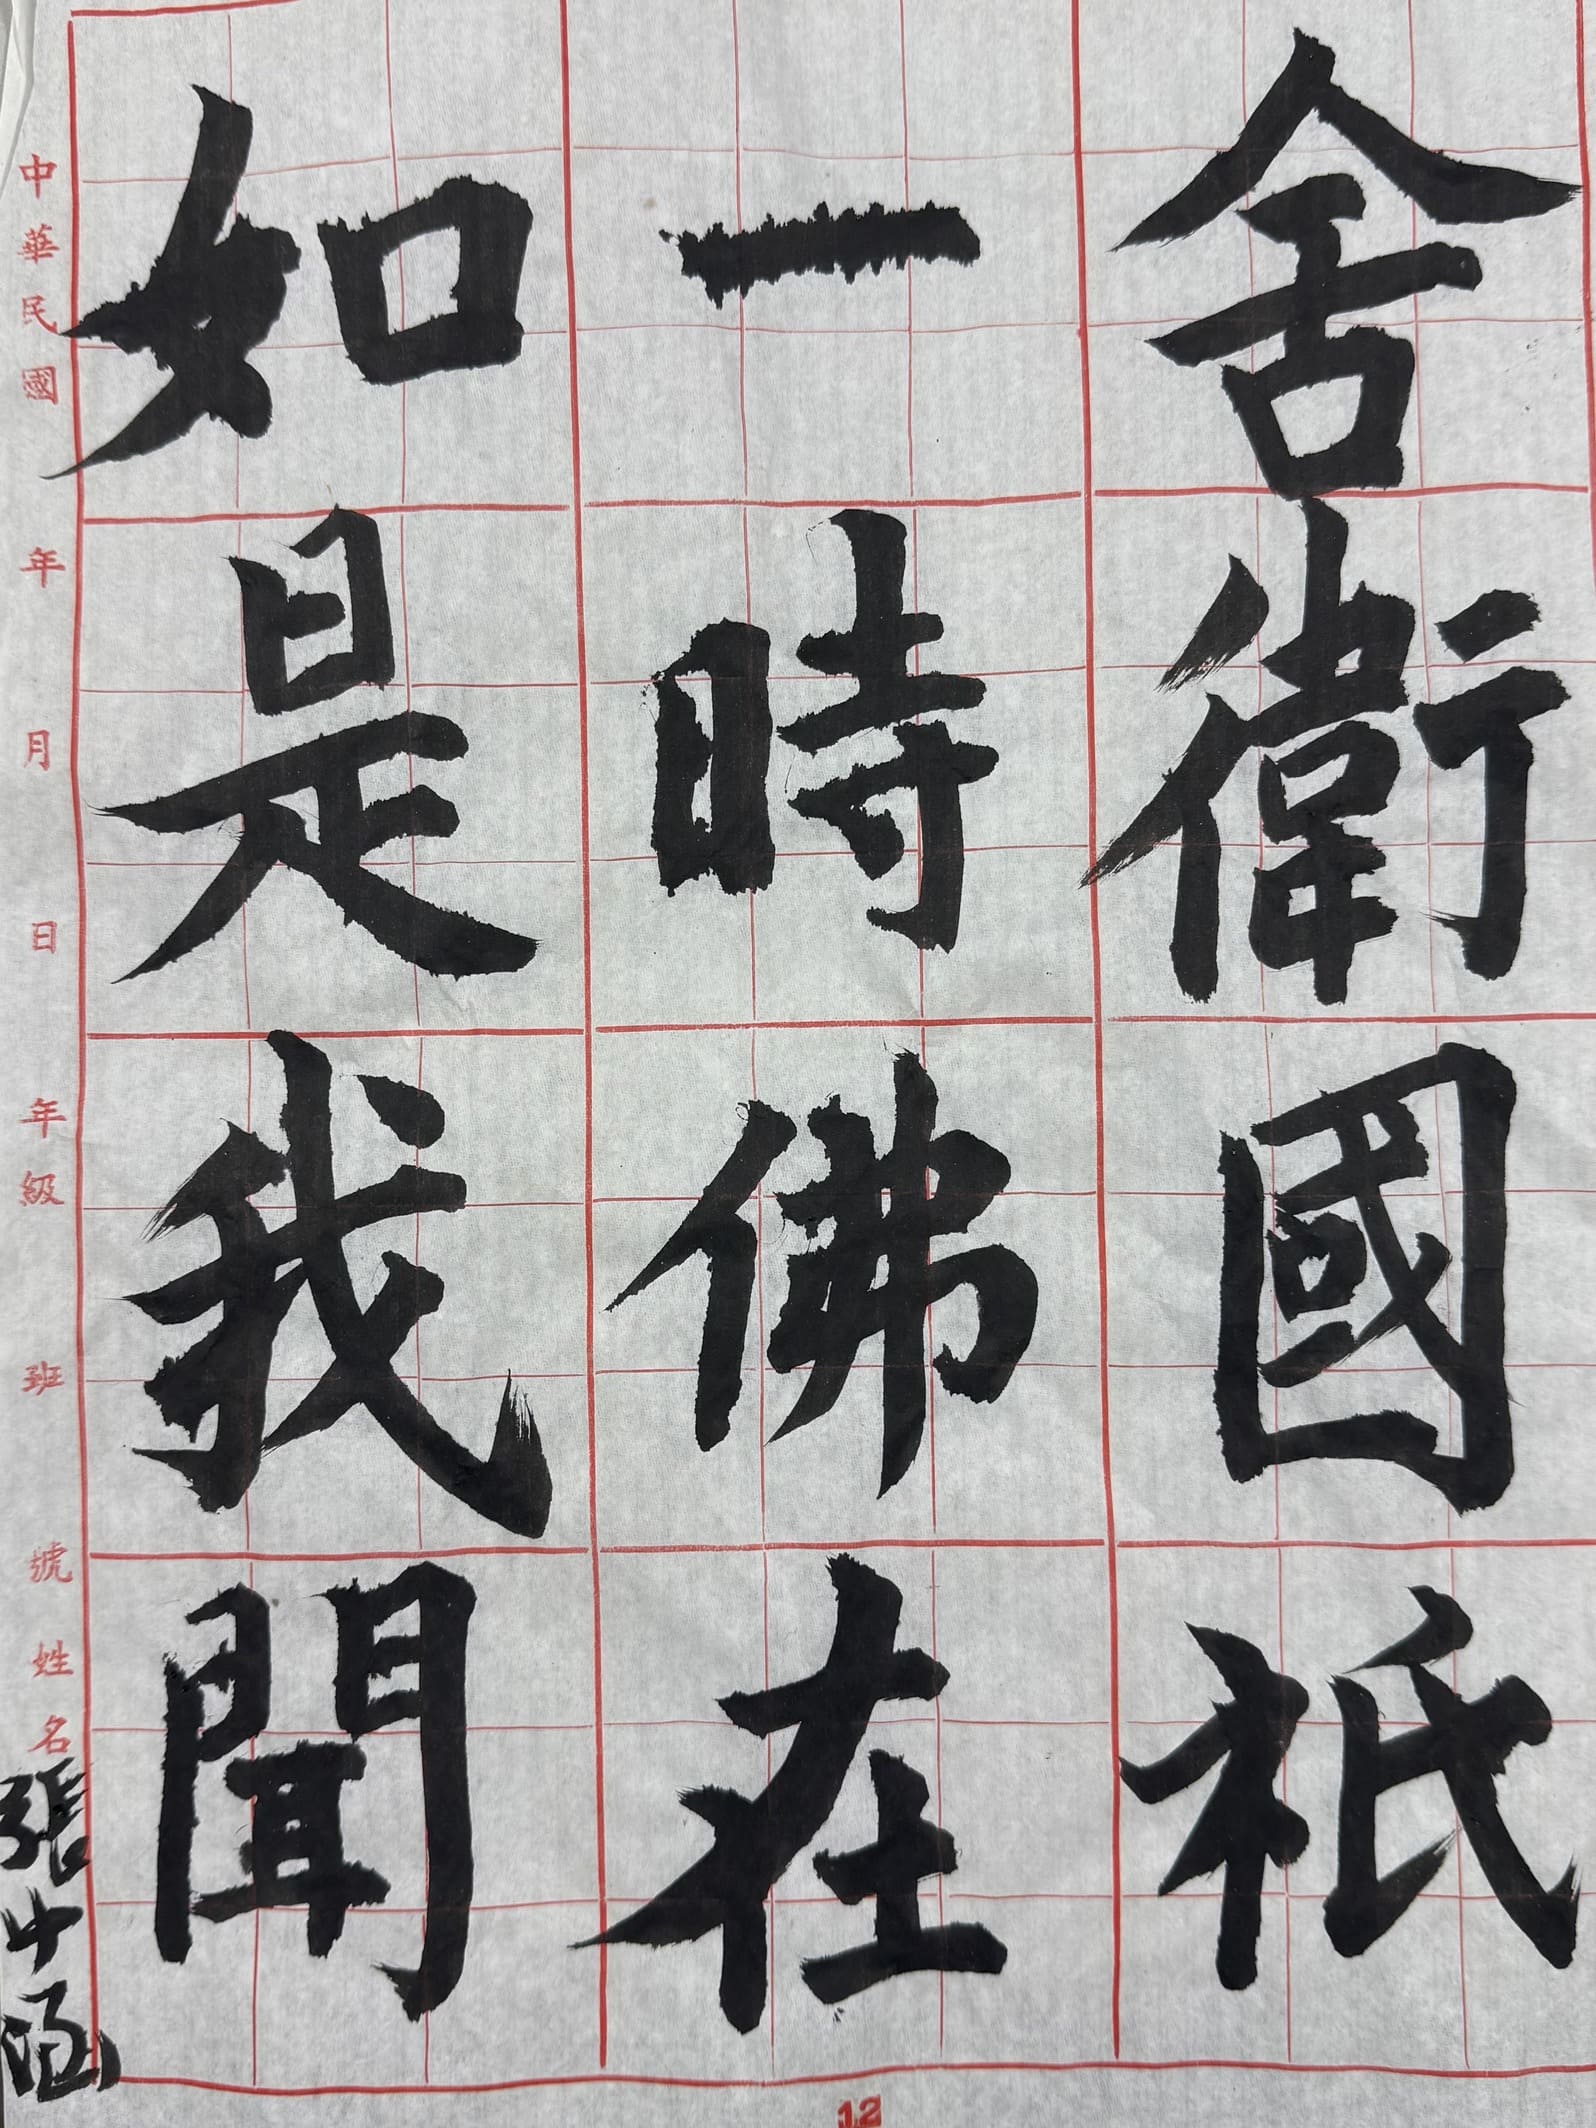 如是我聞
一時佛在
舍衛國祇
中華民國 年 月 日 年級 班 號 姓名 張
12